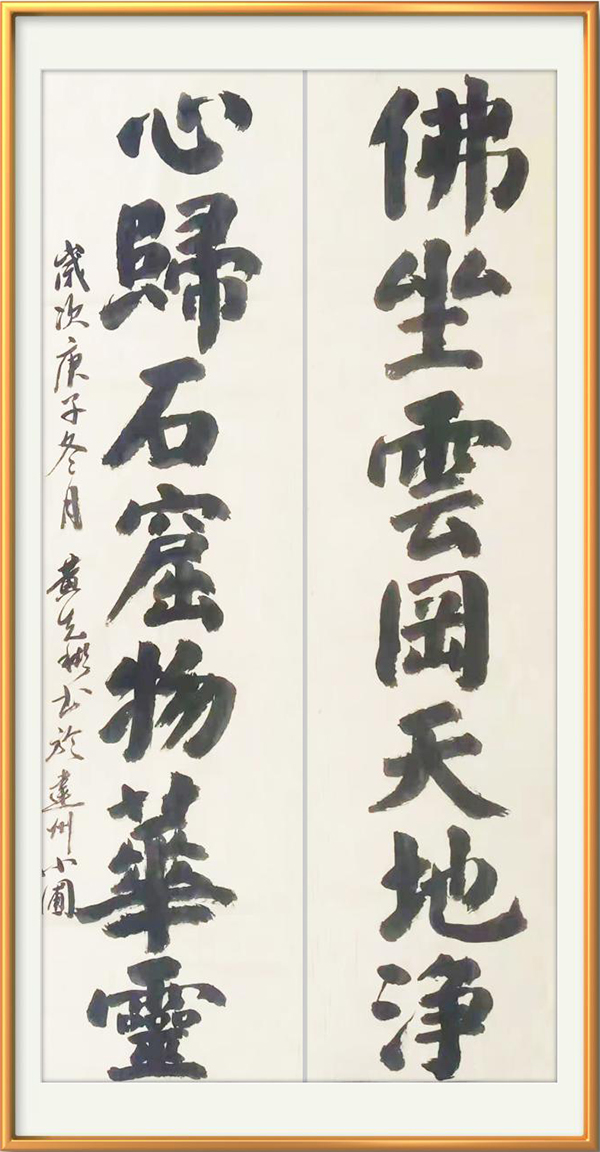 佛坐雲岡天地净
心歸石窟物華靈
歲次庚子冬月 黄先彬书於建州小圃